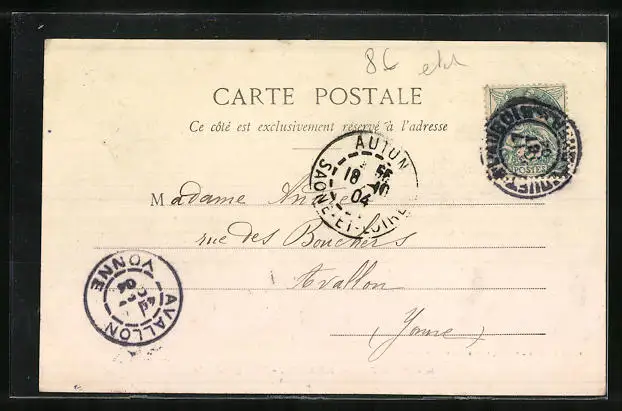 86
CARTE POSTALE
Ce côté est exclusivement réservé à l'adresse
POSTES
AUTUN
18
04
SAÔNE-ET-LOIRE
Madame
rue des Bouchers
Avallon
(Yonne)
AVALLON
YONNE
04